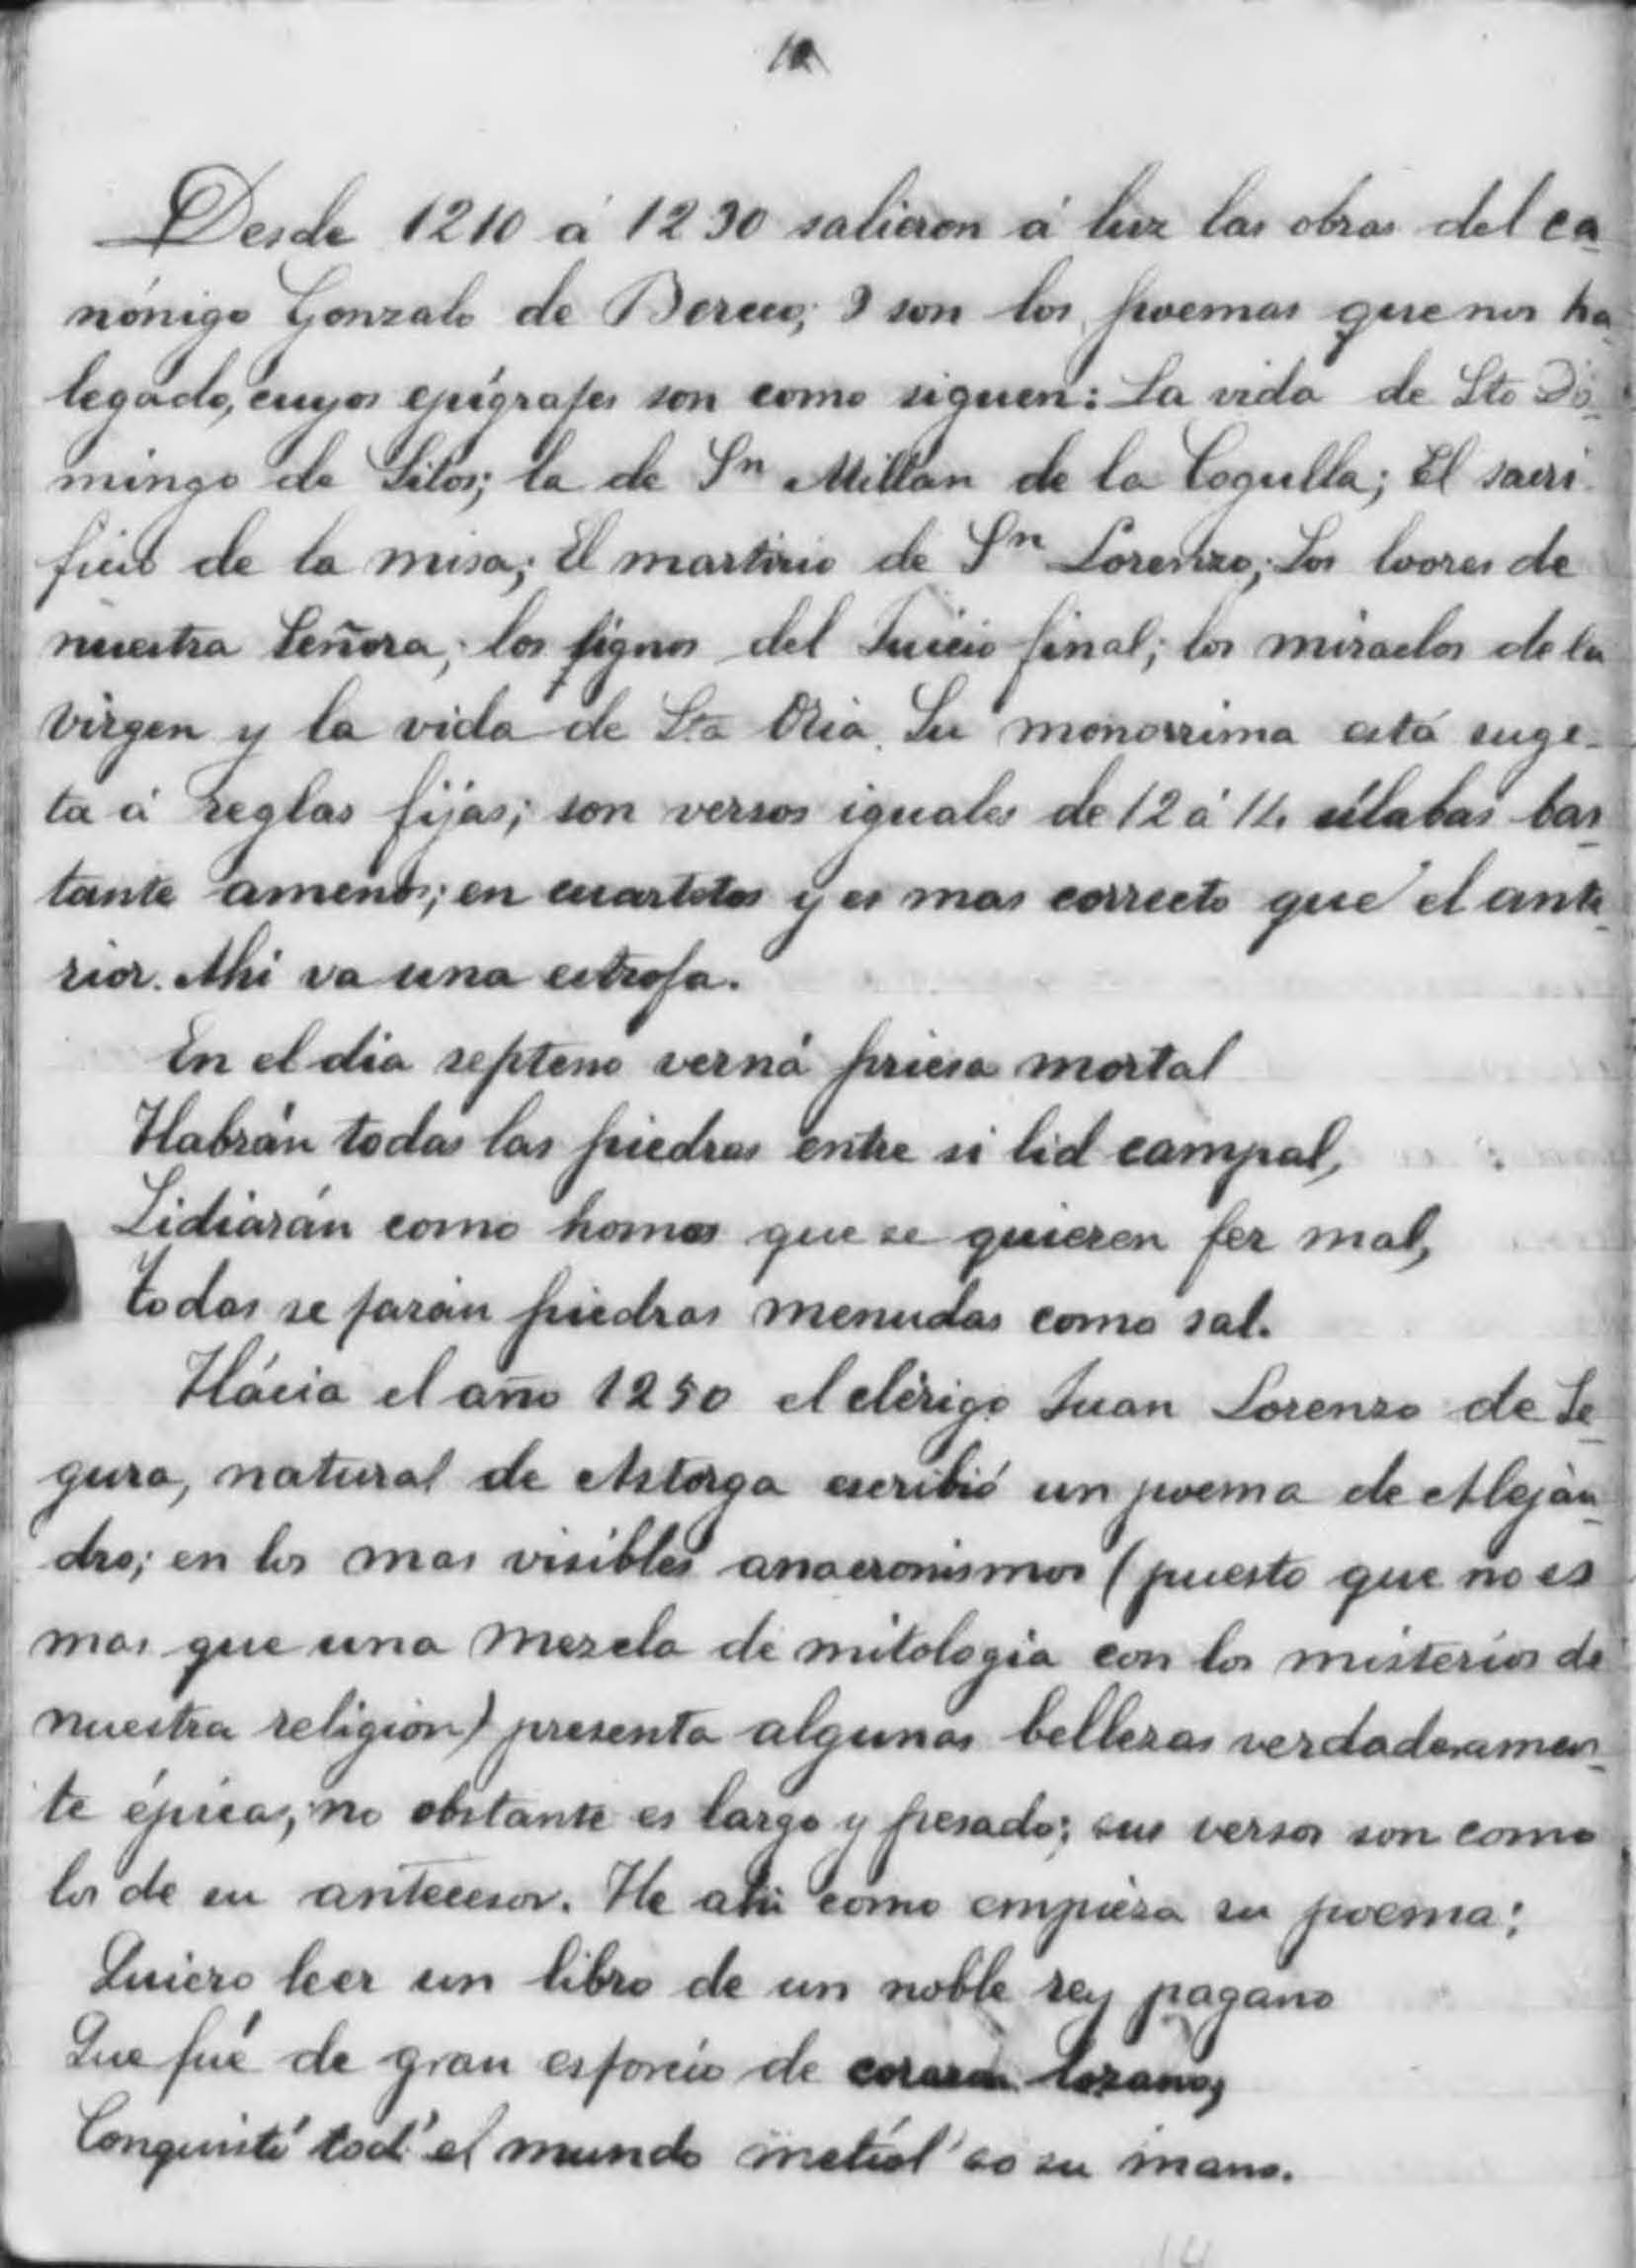 Desde 1210 á 1230 salieron á luz las obras del ca-
nónigo Gonzalo de Berceo; 9 son los poemas que nos ha
legado, cuyos epígrafes son como siguen: La vida de Sto Do-
mingo de Silos; la de Sn Millan de la Cogulla; El sacri-
ficio de la misa; El martirio de Sn Lorenzo; Los loores de
nuestra Señora; los signos del Juicio final; los miraclos de la
Virgen y la vida de Sta Oria. Su monorrima está suge-
ta á reglas fijas; son versos iguales de 12 á 14 sílabas bas-
tante amenos; en cuartetos y es mas correcto que el ante-
rior. Ahi va una estrofa.
En el dia septeno verná priesa mortal
Habrán todas las piedras entre si lid campal,
Lidiarán como homes que se quieren fer mal,
Todas se farán piedras menudas como sal.
Hácia el año 1250 el clérigo Juan Lorenzo de Se-
gura, natural de Astorga escribió un poema de Aleján-
dro; en los mas visibles anacronismos (puesto que no es
mas que una mezcla de mitologia con los misterios de
nuestra religion) presenta algunas bellezas verdaderamen-
te épicas; no obstante es largo y pesado; sus versos son como
los de su antecesor. He ahi como empieza su poema:
Quiero leer un libro de un noble rey pagano
Que fué de gran esforcio de corazon lozano,
Conquistó tod' el mundo metiol' so su mano.